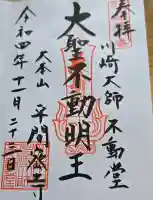 奉拝
川崎大師 不動堂
大聖不動明王
大本山 平間寺
令和四年十一月二十三日